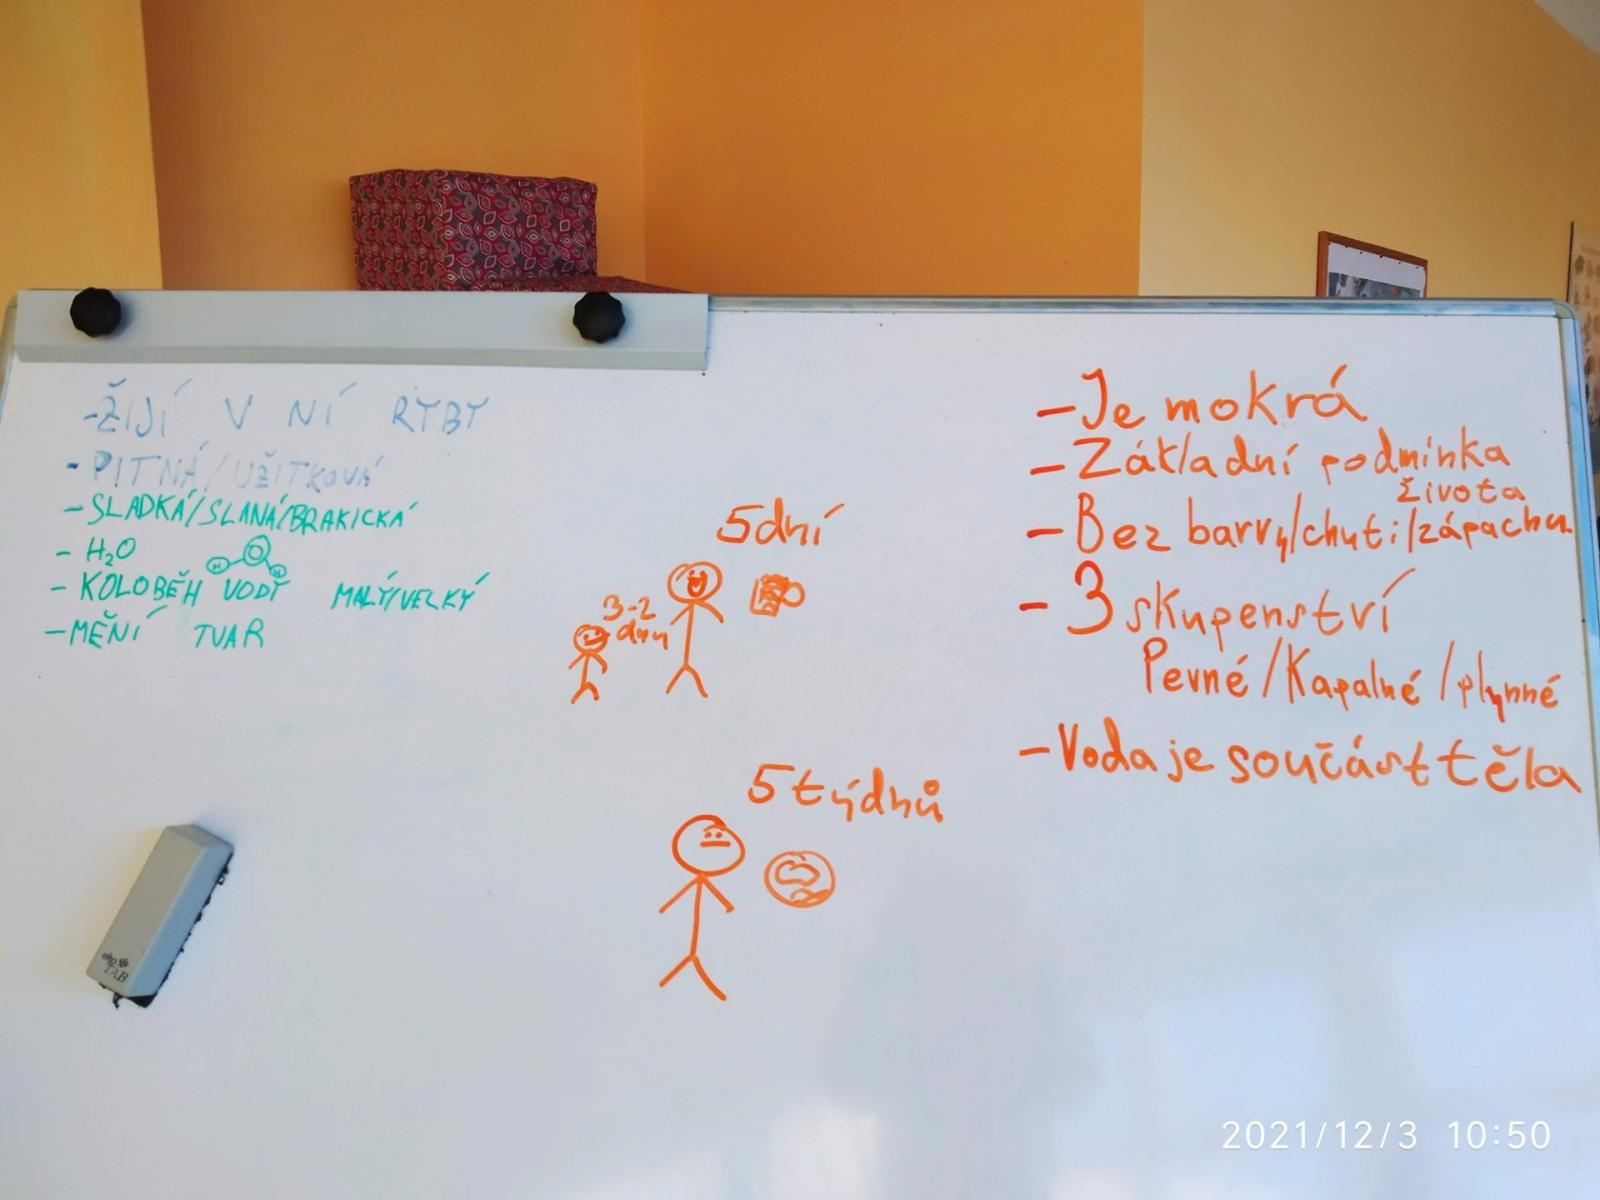 -ŽIJÍ V NÍ RYBY
-PITNÁ/UŽITKOVÁ
-SLADKÁ/SLANÁ/BRAKICKÁ
-H₂O
O
H H
-KOLOBĚH VODY MALÝ/VELKÝ
-MĚNÍ TVAR
5dní
3-2
dny
5 týdnů
-Je mokrá
-Základní podmínka
života
-Bez barvy/chuti/zápachu
-3 skupenství
Pevné/Kapalné/plynné
-Voda je součást těla
TAB
2021/12/3 10:50